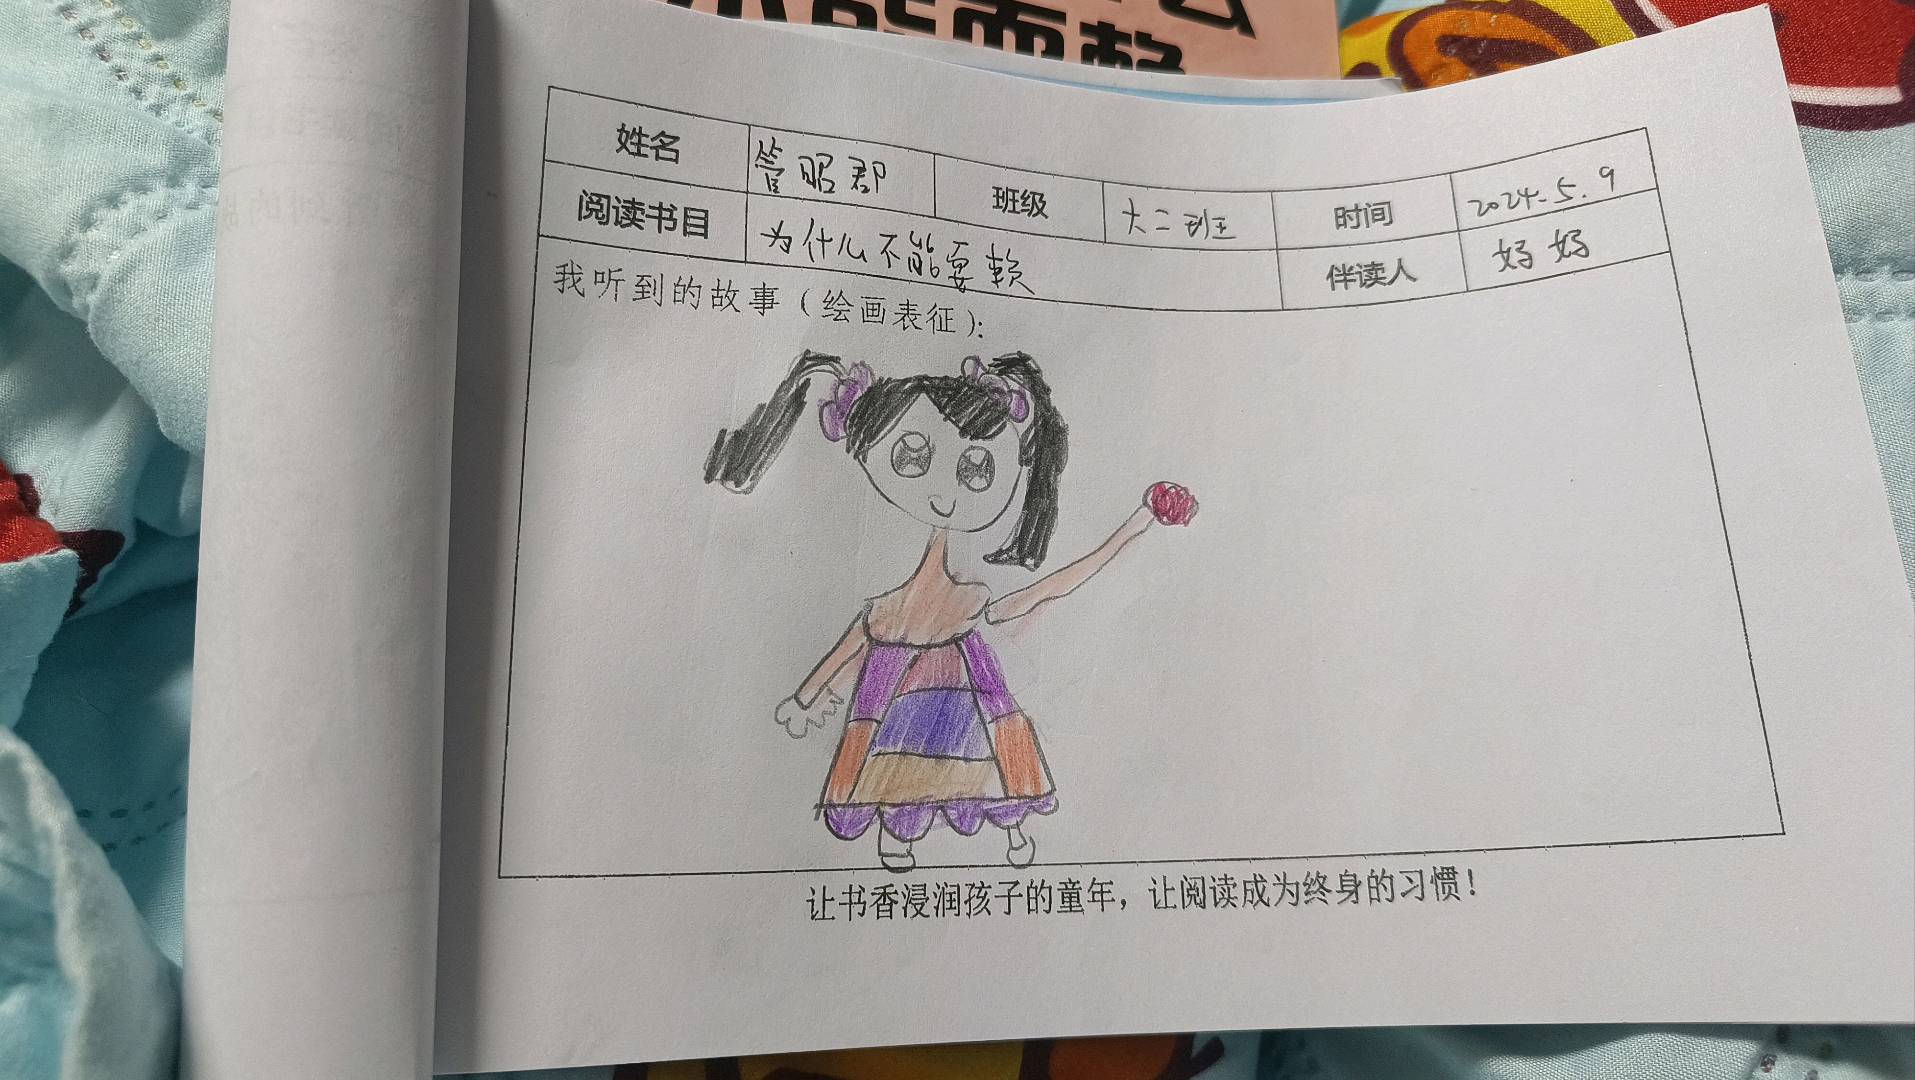 不能耍赖
姓名 管昭郡 班级 大二班 时间 2024.5.9
阅读书目 为什么不能耍赖 伴读人 妈妈
我听到的故事（绘画表征）：
让书香浸润孩子的童年，让阅读成为终身的习惯！